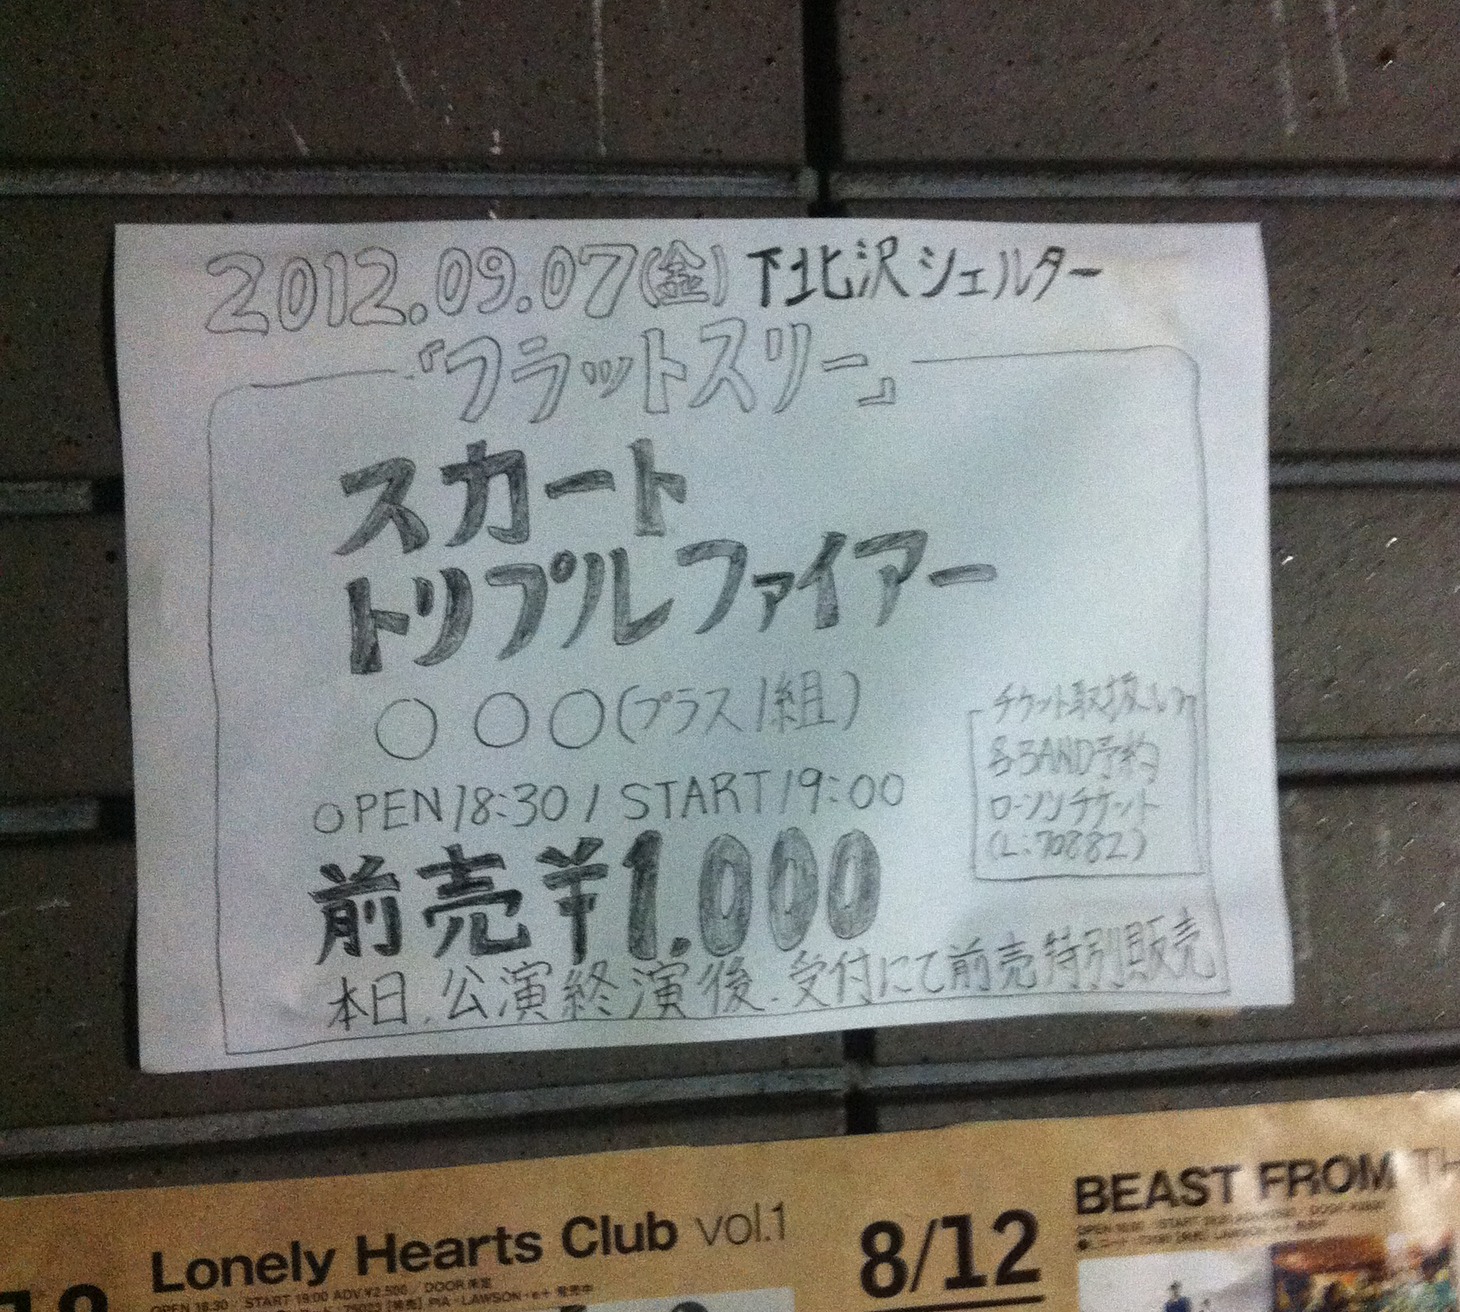 2012.09.07(金) 下北沢シェルター
『フラットスリー』
スカート
トリプルファイアー
○ ○ ○(プラス1組)
OPEN 18:30 / START 19:00
前売¥1.000
本日.公演終演後.受付にて前売特別販売
チケット取扱い
各BAND予約
ローソンチケット
(L:70882)
Lonely Hearts Club vol.1
OPEN 18:30 START 19:00 ADV.¥2,500 DOOR.未定
PIA・LAWSON・e+ 発売中
8/12
BEAST FROM